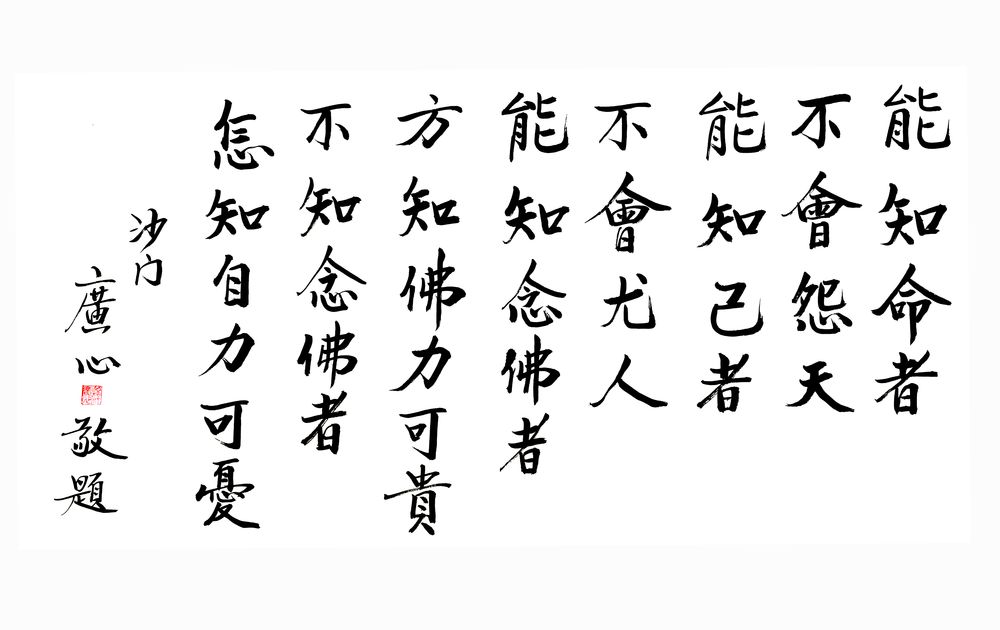 能知命者
不會怨天
能知己者
不會尤人
能知念佛者
方知佛力可貴
不知念佛者
怎知自力可憂
沙门
廣心
敬題